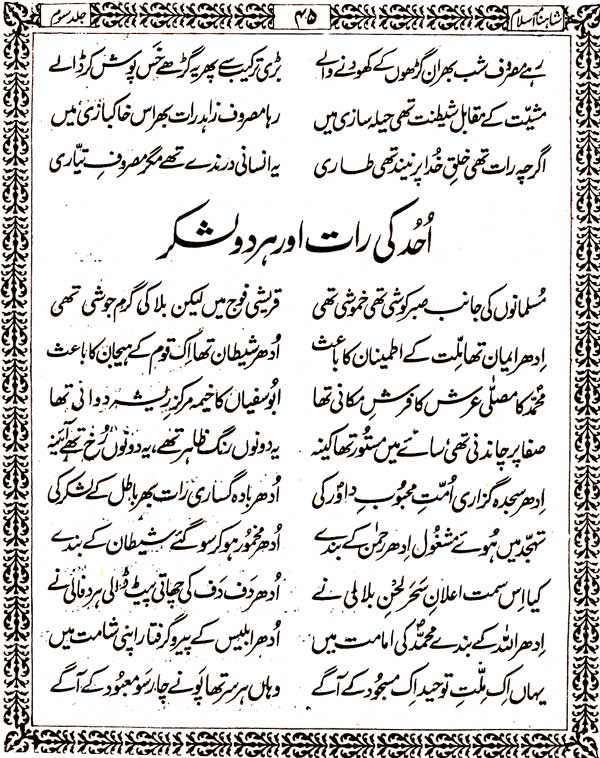 شاہنامۂ اسلام ۴۵ جلد سوم
رہے مصروف شب بھر ان گڑھوں کے کھودنے والے بڑی ترکیب سے پھر یہ گڑھے خس پوش کر ڈالے
مشیّت کے مقابل شیطنت تھی حیلہ سازی میں رہا مصروف زاہد رات بھر اس خاکبازی میں
اگرچہ رات تھی خلقِ خُدا پر نیند تھی طاری یہ انسانی درندے تھے مگر مصروفِ تیّاری
اُحُد کی رات اور ہر دو لشکر
مُسلمانوں کی جانب صبر کوشی تھی خموشی تھی قریشی فوج میں لیکن بلا کی گرم جوشی تھی
اِدھر ایمان تھا مِلّت کے اطمینان کا باعث اُدھر شیطان تھا اِک قوم کے ہیجان کا باعث
محمدؐ کا مصلّٰی عرش کا فرشِ مکانی تھا ابوسفیاں کا خیمہ مرکزِ ریشہ دوانی تھا
صفا پر چاندنی تھی سائے میں مستُور تھا کینہ یہ دونوں رنگ ظاہر تھے، یہ دونوں رُخ تھے آئینہ
اِدھر سجدہ گزاری اُمّتِ محبُوبِ داوَر کی اُدھر بادہ گساری رات بھر باطل کے لشکر کی
تہجّد میں ہُوئے مشغُول اِدھر رحمٰن کے بندے اُدھر مخمُور ہو کر سو گئے شیطان کے بندے
کیا اِس سمت اعلانِ سَحَر لحنِ بلالی نے اُدھر دَف دَف کی چھاتی پیٹ ڈالی ہر دفالی نے
اِدھر اللہ کے بندے محمدؐ کی امامت میں اُدھر ابلیس کے پیرو گرفتار اپنی شامت میں
یہاں اِک مِلّتِ توحید اِک مسجُود کے آگے وہاں ہر سر تھا پَونے چار سَو معبُود کے آگے